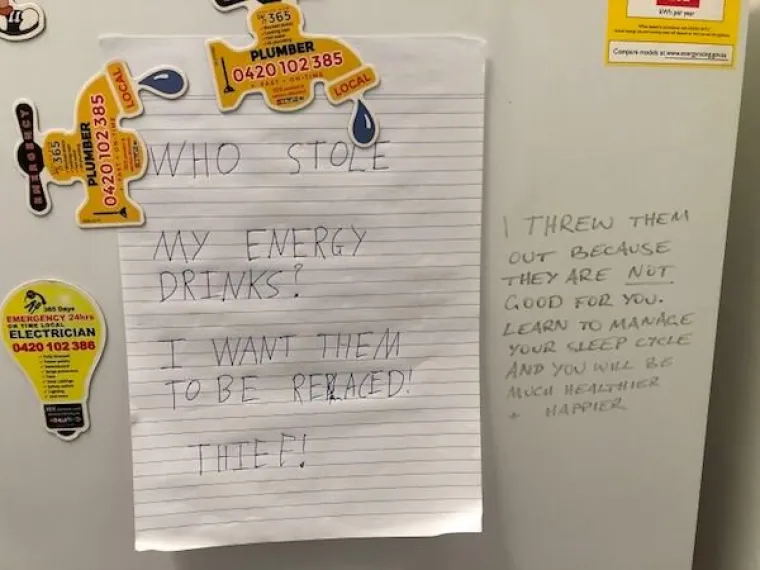 365
PLUMBER
0420 102 385
FAST • ON-TIME
LOCAL
EMERGENCY
365
PLUMBER
0420 102 385
LOCAL
365 Days
EMERGENCY 24hrs
ON TIME LOCAL
ELECTRICIAN
0420 102 386
WHO STOLE
MY ENERGY
DRINKS?
I WANT THEM
TO BE REPLACED!
THIEF!
kWh per year
Compare models at www.energyrating.gov.au
I THREW THEM
OUT BECAUSE
THEY ARE NOT
GOOD FOR YOU.
LEARN TO MANAGE
YOUR SLEEP CYCLE
AND YOU WILL BE
MUCH HEALTHIER
+ HAPPIER